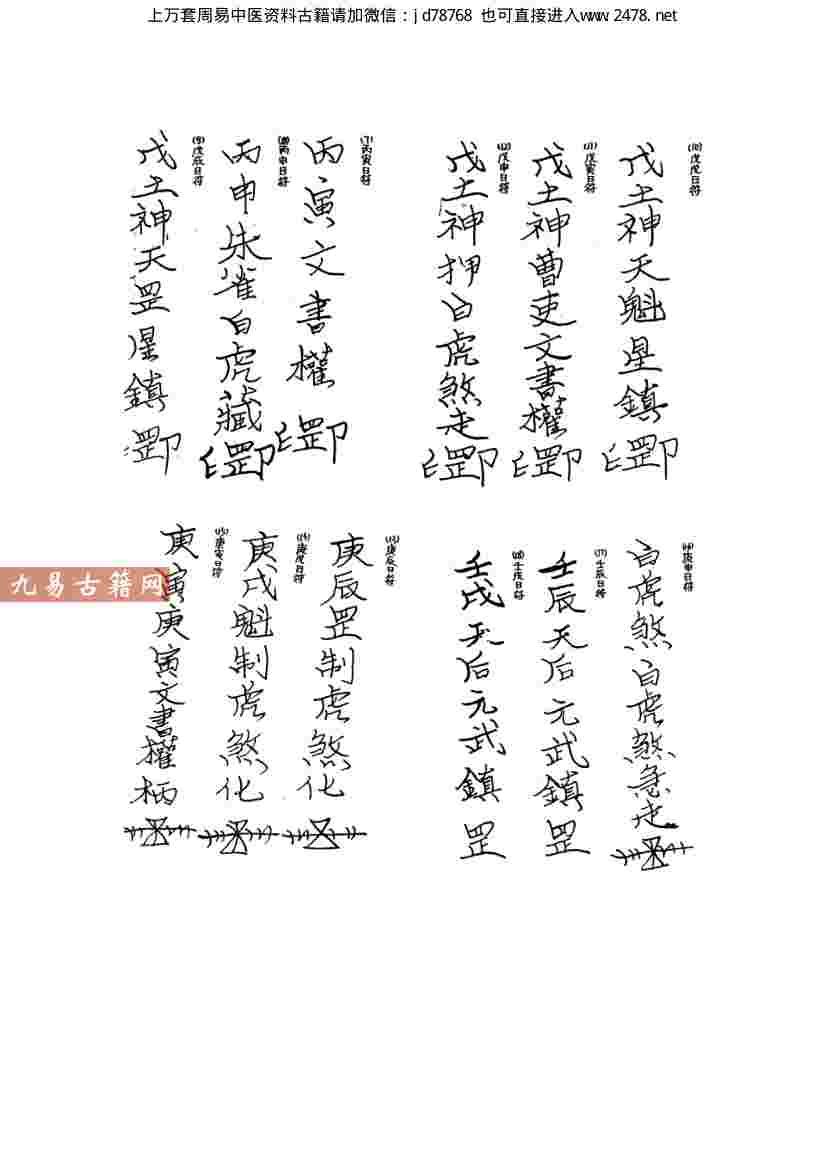 上万套周易中医资料古籍请加微信：jd78768 也可直接进入www.2478.net
(7)丙寅日符
丙寅文書權
(8)丙申日符
丙申朱雀白虎藏
(9)戊辰日符
戊土神天罡星鎮
(10)戊戌日符
戊土神天魁星鎮
(11)戊寅日符
戊土神曹吏文書權
(12)戊申日符
戊土神押白虎煞走
(13)庚辰日符
庚辰罡制虎煞化
(14)庚戌日符
庚戌魁制虎煞化
(15)庚寅日符
庚寅庚寅文書權柄
庚申日符
白虎煞白虎煞急走
(17)壬辰日符
壬辰天后元武鎮罡
(18)壬戌日符
壬戌天后元武鎮罡
九易古籍网